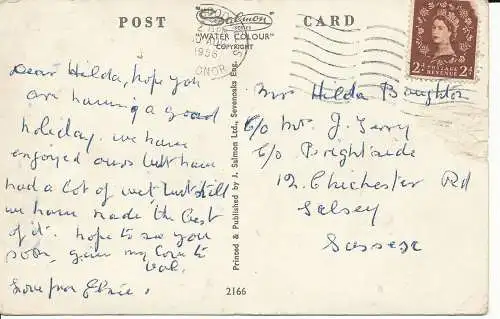 POST CARD
"Salmon"
SERIES
"WATER COLOUR"
COPYRIGHT
1956
2D POSTAGE REVENUE 2D
Dear Hilda, hope you
are having a good
holiday. we have
enjoyed ours but have
had a lot of wet, but still
we have made the best
of it. hope to see you
soon, give my love to
love from Elsie.
Printed & Published by J. Salmon Ltd., Sevenoaks Eng.
2166
Mrs Hilda Boughton
c/o Mr. J. Terry
c/o Brightside
12, Chichester Rd
Selsey
Sussex